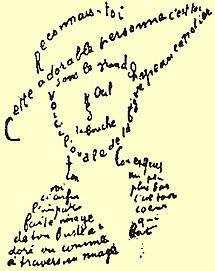 Reconnais-toi
Cette adorable personne c'est toi
sous le grand chapeau canotier
Œil
la bouche
Voici l'ovale de ta figure
ton
cou exquis
Voi
ci enfin
l'impar
faite image
de ton buste a
doré vu comme
à travers un nuage
un peu
plus bas
c'est ton
coeur
qui
bat